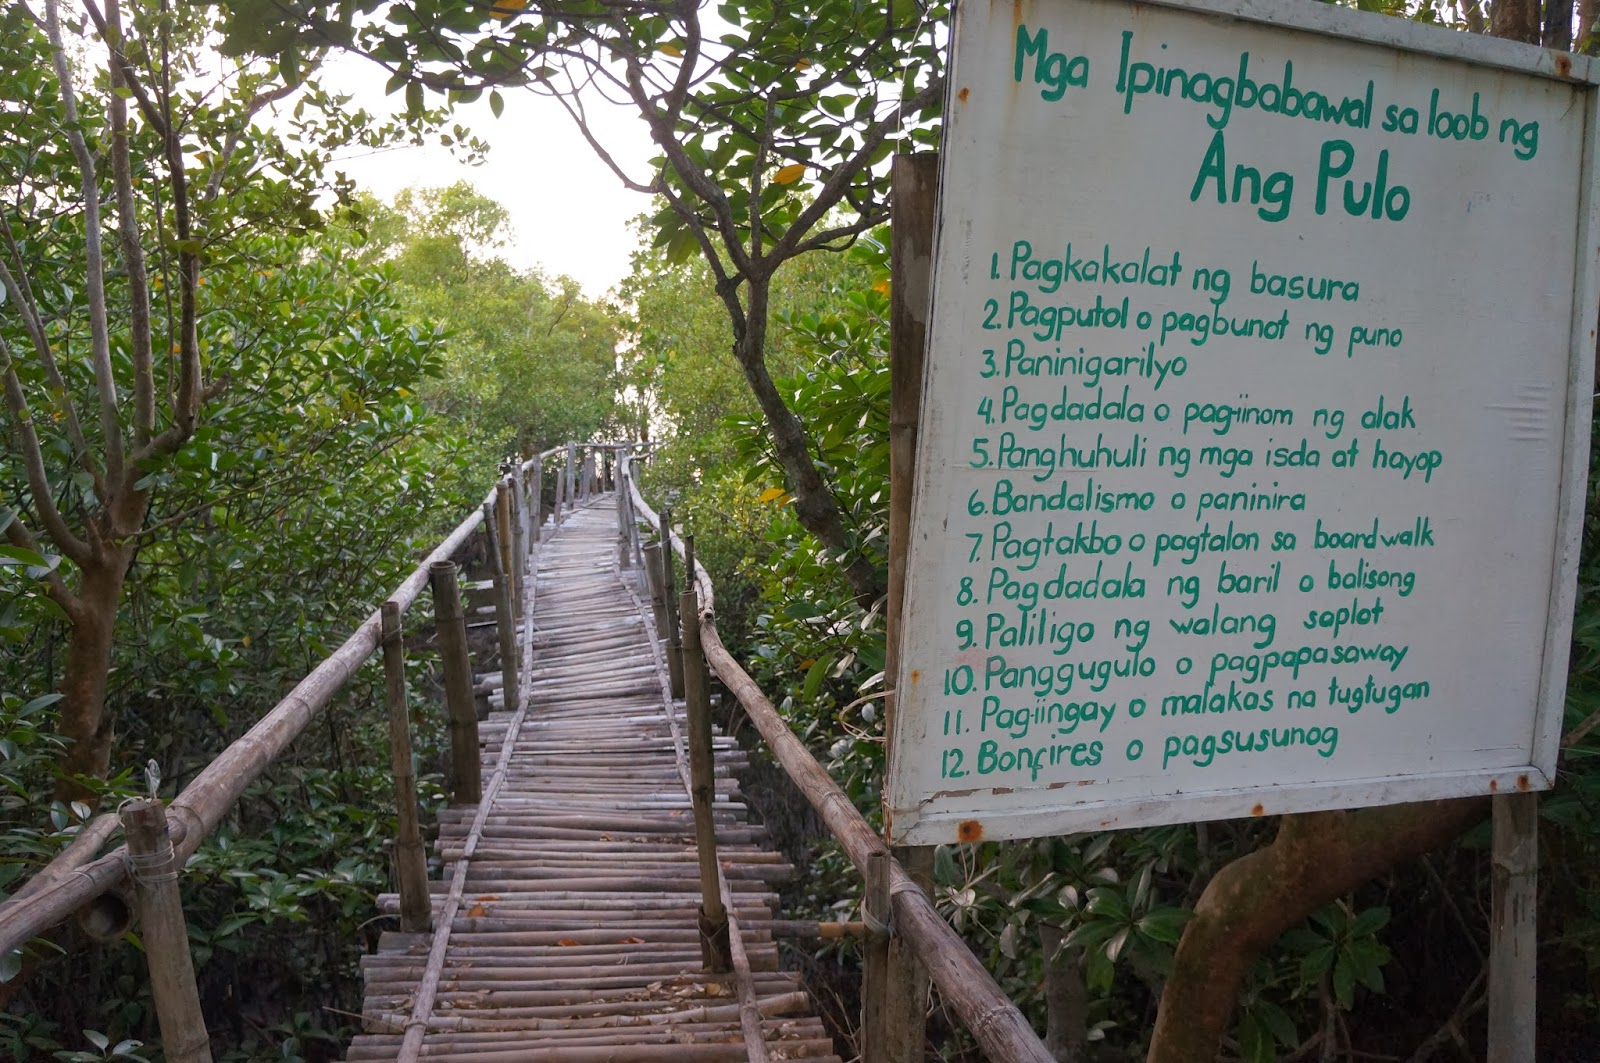 Mga Ipinagbabawal sa loob ng
Ang Pulo
1. Pagkakalat ng basura
2. Pagputol o pagbunot ng puno
3. Paninigarilyo
4. Pagdadala o pag-iinom ng alak
5. Panghuhuli ng mga isda at hayop
6. Bandalismo o paninira
7. Pagtakbo o pagtalon sa boardwalk
8. Pagdadala ng baril o balisong
9. Paliligo ng walang saplot
10. Panggugulo o pagpapasaway
11. Pag-iingay o malakas na tugtugan
12. Bonfires o pagsusunog